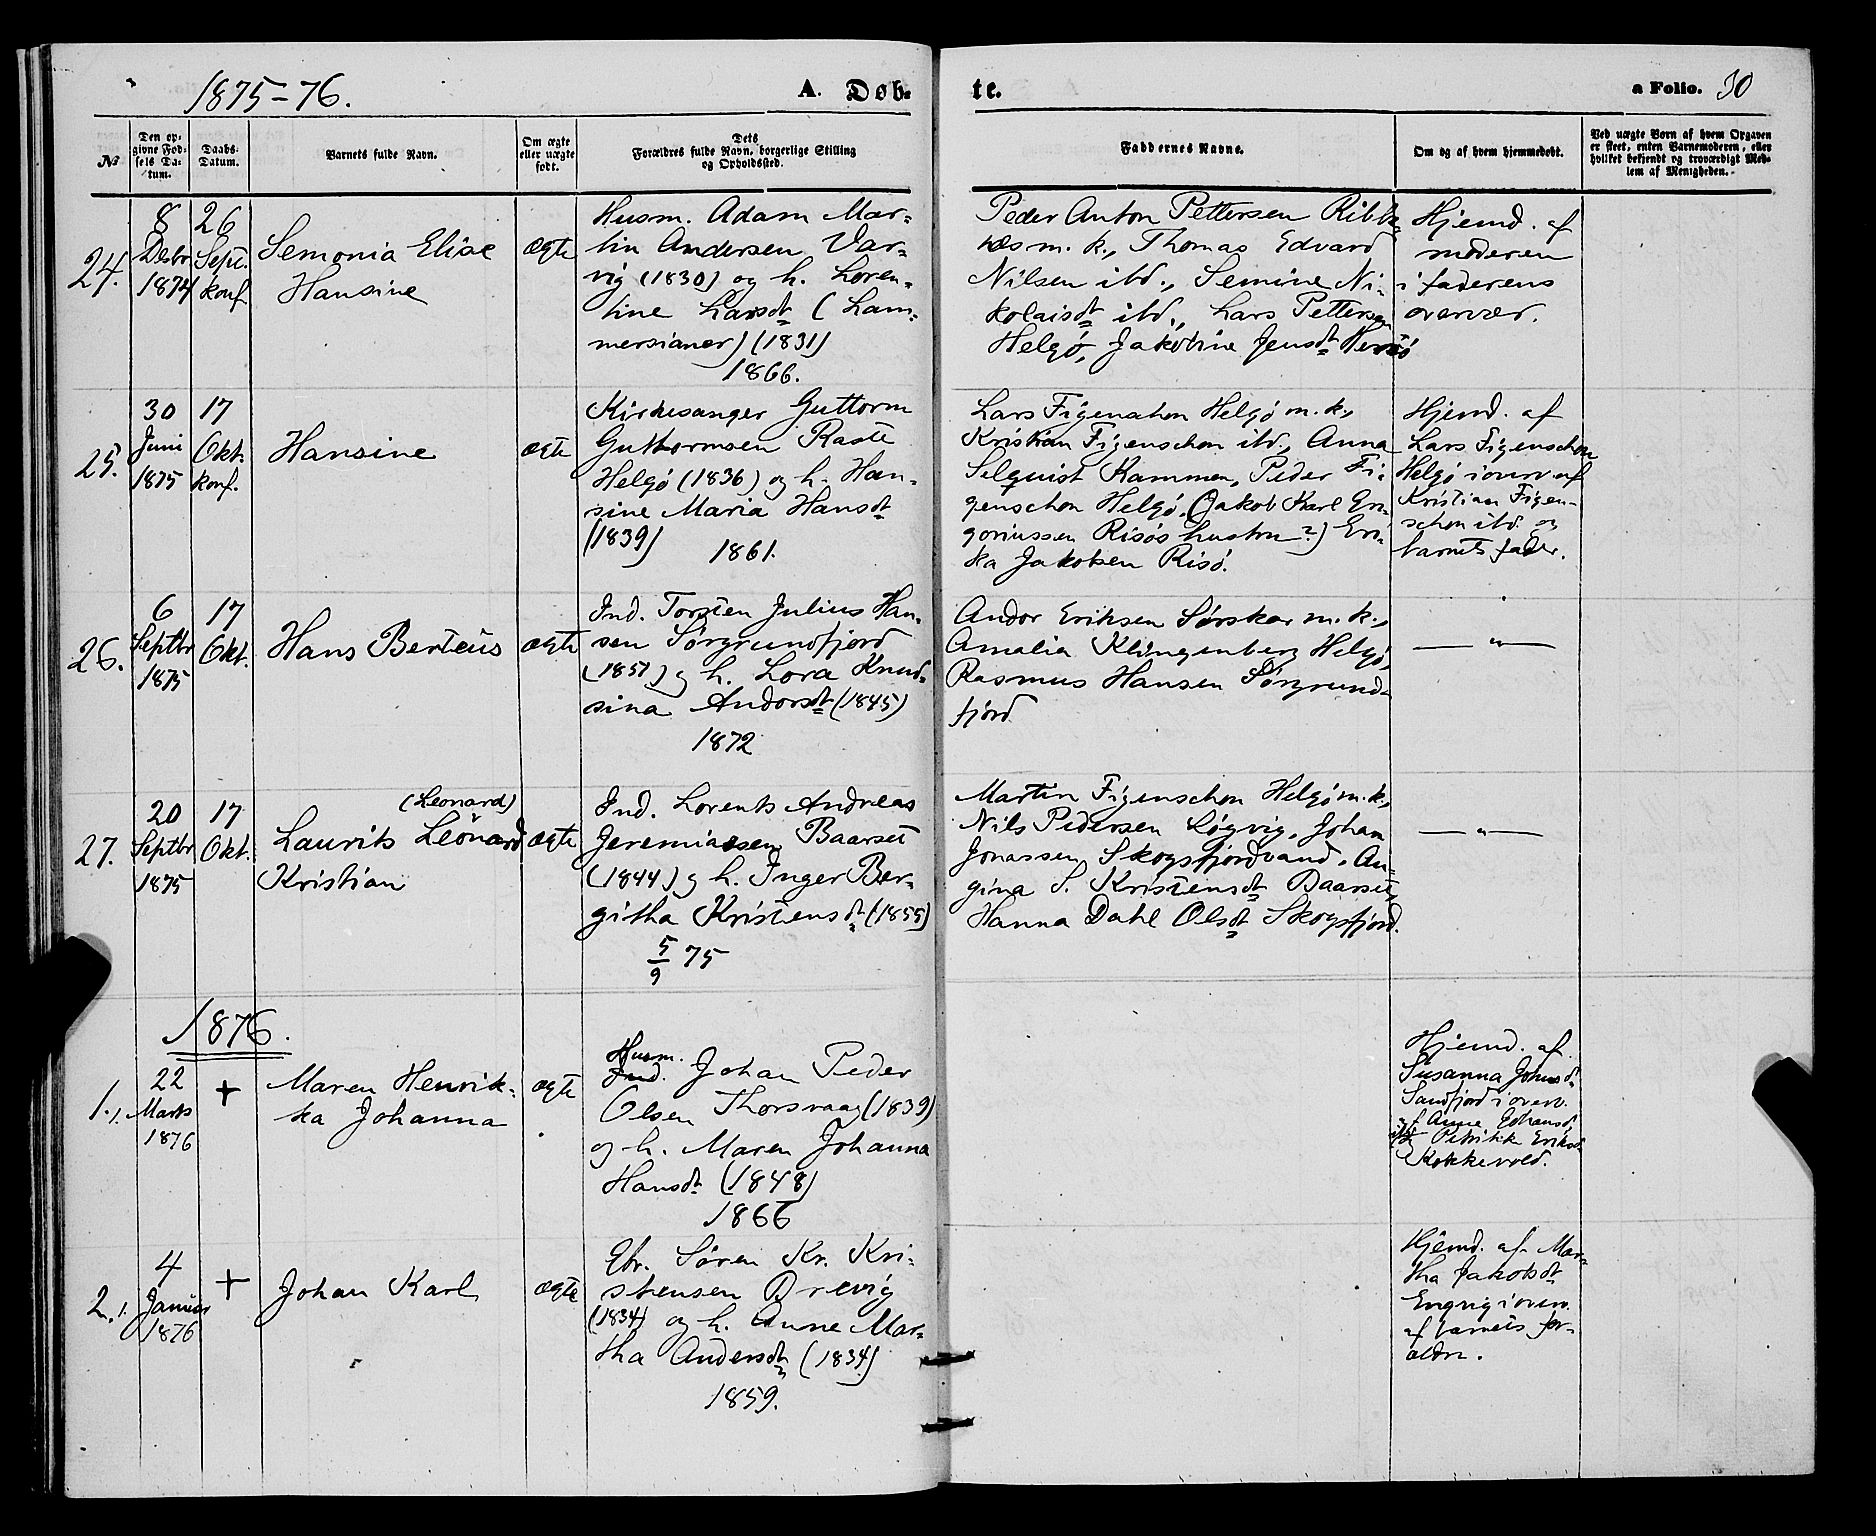 1875-76.
A. Døb-
te.
a Folio. 30
№
Den op-
givne Fød-
sels Da-
tum.
Daabs-
Datum.
Barnets fulde Navn.
Om ægte
eller uægte
født.
Dets
Forældres fulde Navn, borgerlige Stilling
og Opholdssted.
Faddernes Navne.
Om og af hvem hjemmedøbt.
Ved uægte Børn af hvem Opgaven
er skeet, enten Barnemoderen, eller
hvilket bekjendt og troværdigt Med-
lem af Menigheden.
24.
8
Decbr
1874
26
Sept.
konf.
Semonia Elise
Hansine
ægte
Husm. Adam Mar-
tin Andersen Var-
vig (1830) og h. Loren-
tine Larsdt (Lam-
mersianer) (1831)
1866.
Peder Anton Pettersen Ribbe
næs m. k., Thomas Edvard
Nilsen ibd., Semine Ni-
kolaisdt ibd., Lars Pettersen
Helgø, Jakobine Jensdt
Hjemd. af
moderen
i faderens
overvær.
25.
30
Juni
1875
17
Okt.
konf.
Hansine
ægte
Kirkesanger Guttorm
Guttormsen Raste
Helgø (1836) og h. Han-
sine Maria Hansdt
(1839)
1861.
Lars Figenschou Helgø m. k.,
Kristian Figenschou ibd., Anna
Selquist Kammen, Peder Fi-
genschou Helgø, (Jakob Karl Gre-
goriussen Risøs hustru?) Eri-
ka Jakobsen Risø.
Hjemd. af
Lars Figenschou
Helgø i overv. af
Kristian Figen-
schou ibd. og
barnets fader.
26.
6
Septbr
1875
17
Okt.
Hans Berteus
ægte
Ind. Torsten Julius Han-
sen Sørgrundfjord
(1851) og h. Lora Knud-
sina Andorsdt (1845)
1872
Andor Eriksen Sørskar m. k.,
Amalia Klingenberg Helgø,
Rasmus Hansen Sørgrund-
fjord
— " —
27.
20
Septbr
1875
17
Okt.
(Leonard)
Laurits Leonard
Kristian
ægte
Ind. Lorents Andreas
Jeremiassen Baarset
(1844) og h. Inger Ber-
githa Kristensdt (1855)
5/9 75
Martin Figenschou Helgø m. k.,
Nils Pedersen Løgvig, Johan
Jonassen Skogsfjordvand, An-
gina S. Kristensdt Baarset,
Hanna Dahl Olsdt Skogsfjord.
— " —
1876.
1.
1.
22
Marts
1876
+
Maren Henrik-
ka Johanna
ægte
Husm.
Ind. Johan Peder
Olsen Thorsvaag (1839)
og h. Maren Johanna
Hansdt (1848)
1866
Hjemd. af
Susanna Johnsd.
Sandfjord i overv.
af Anne
Eriksd.
Kokkevold.
2.
1.
4
Januar
1876
+
Johan Karl
ægte
Gbr. Søren Kr. Kri-
stensen Drevig
(1834) og h. Anne Mar-
tha Andersdt (1834)
1859.
Hjemd. af Mar-
tha Jakobsdt
Engvig i overv.
af barnets for-
ældre.